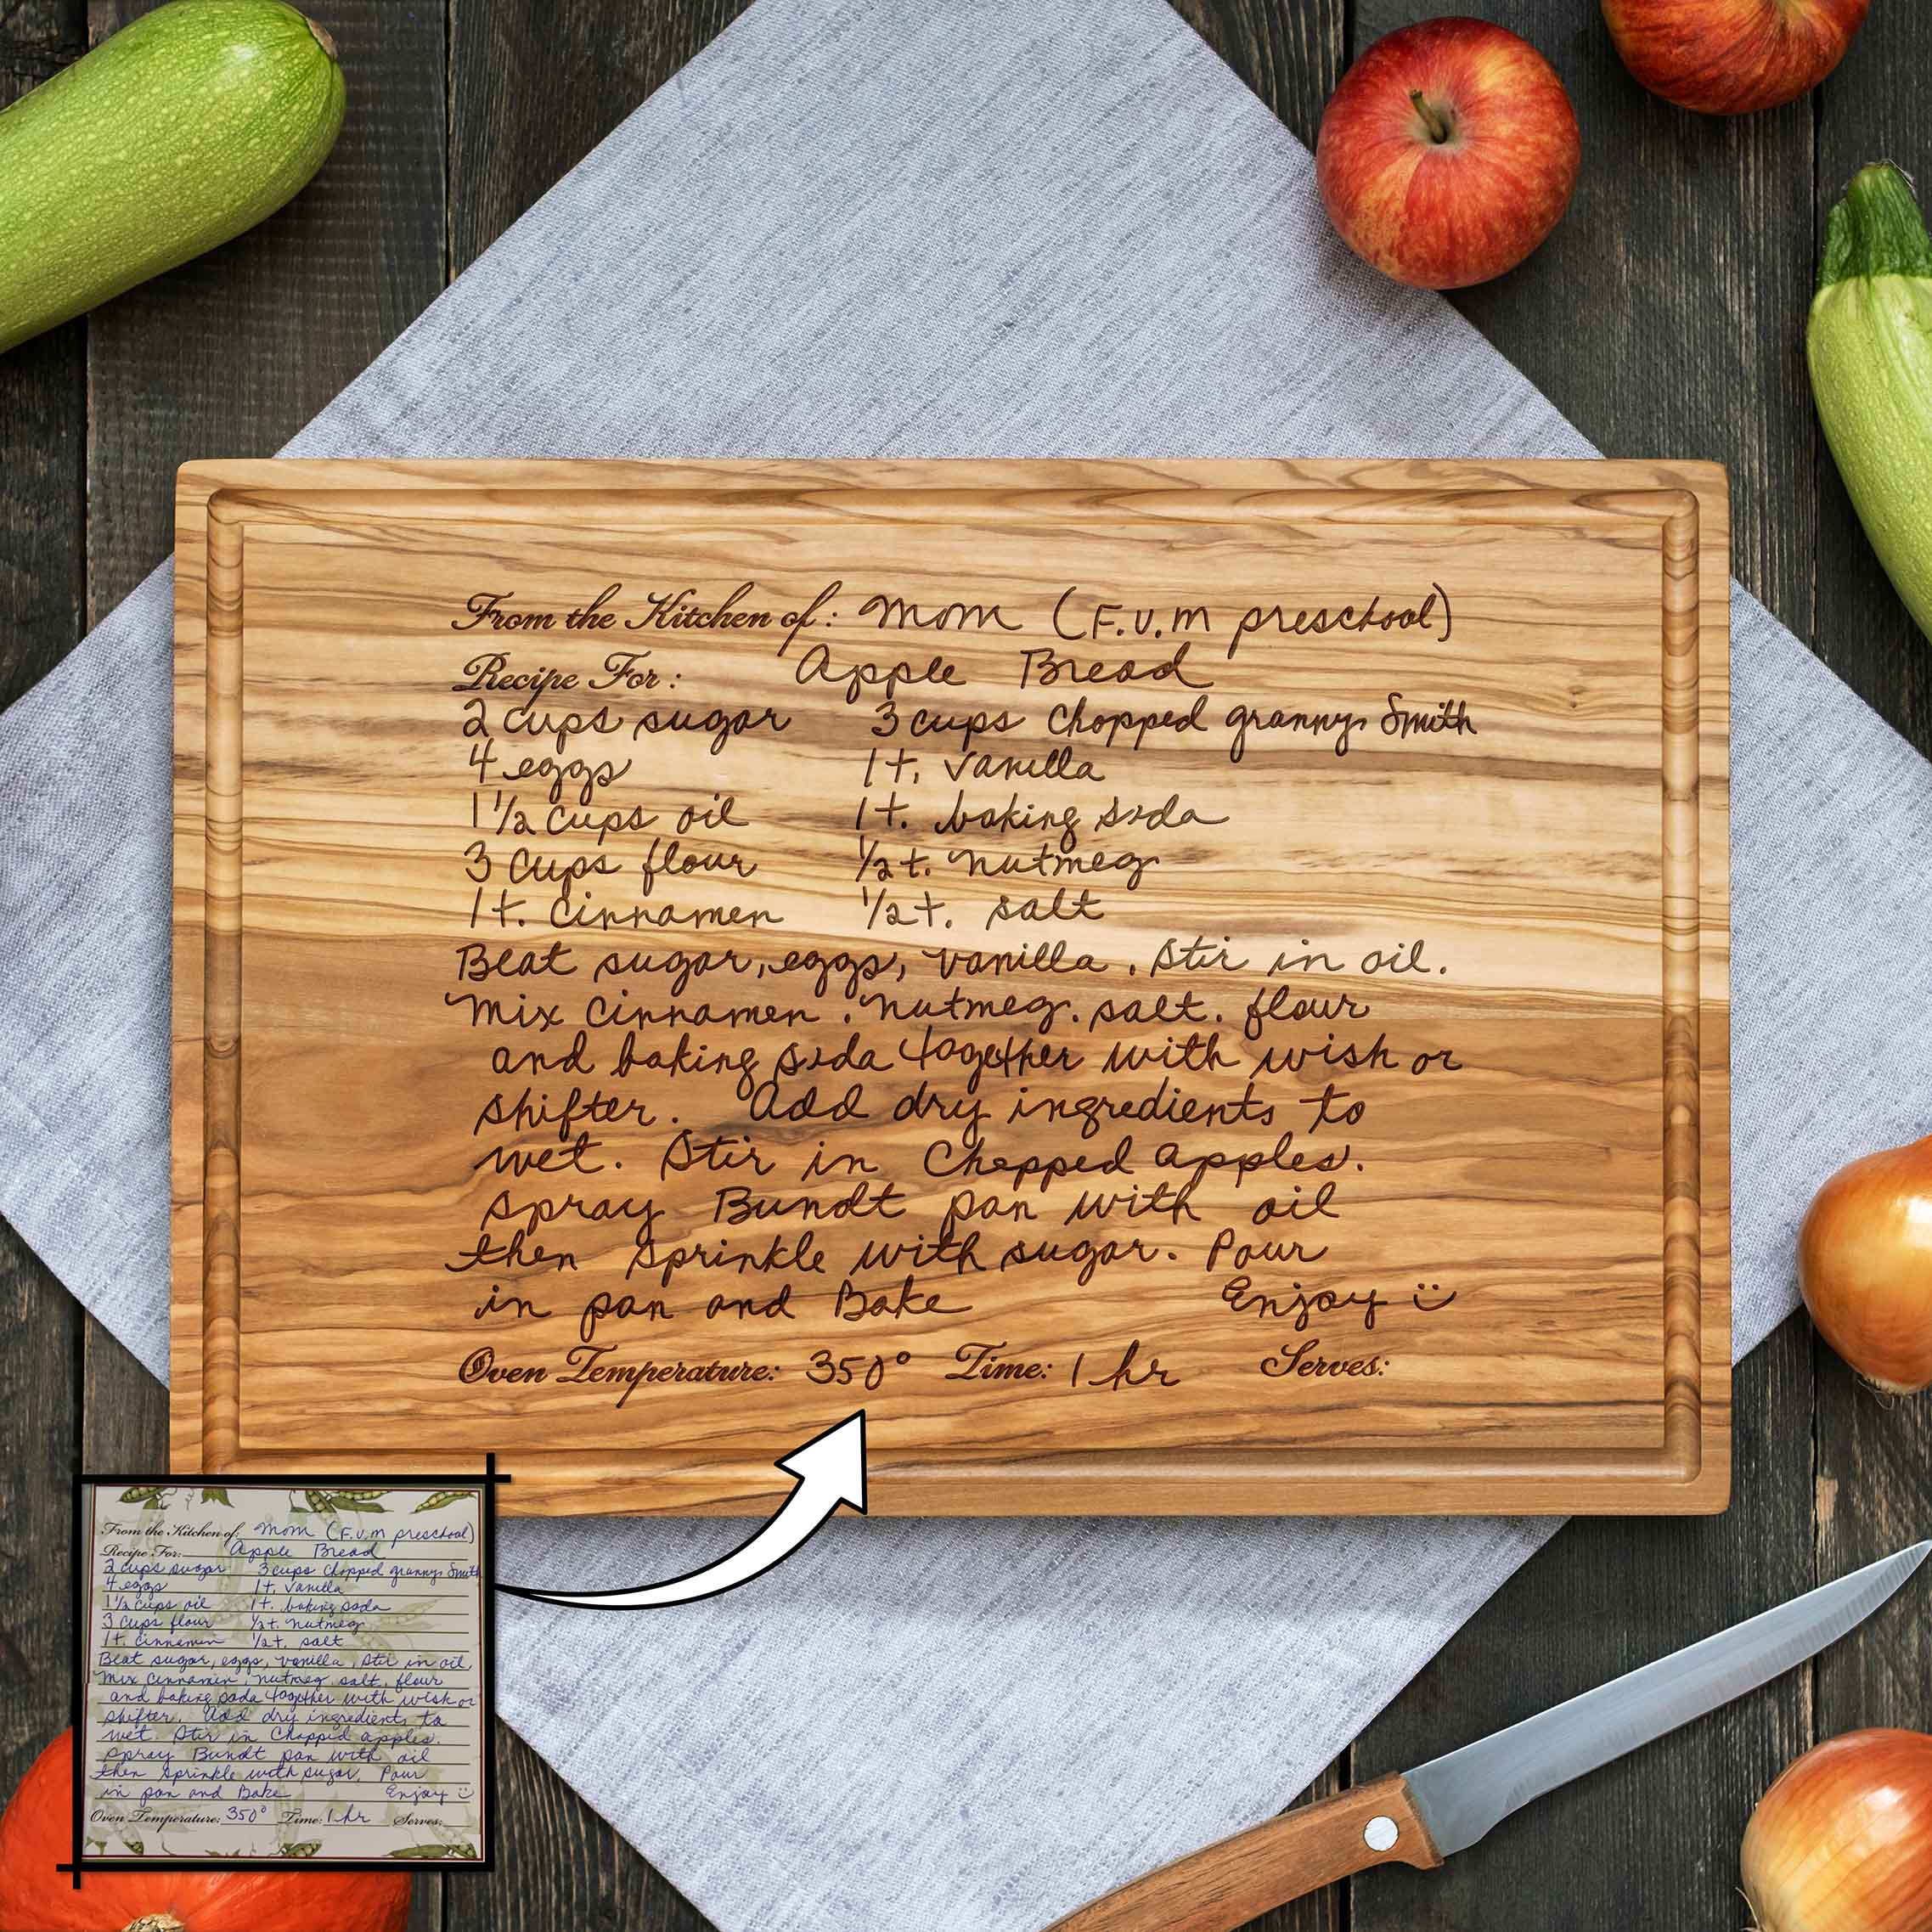 From the Kitchen of: Mom (F.V.M preschool)
Recipe For: Apple Bread
2 cups sugar 3 cups Chopped granny Smith
4 eggs 1 t. vanilla
1 1/2 cups oil 1 t. baking soda
3 cups flour 1/2 t. nutmeg
1 t. Cinnamen 1/2 t. salt
Beat sugar, eggs, vanilla. Stir in oil.
Mix Cinnamen. nutmeg. salt. flour
and baking soda together with wisk or
shifter. Add dry ingredients to
wet. Stir in Chopped apples.
spray Bundt pan with oil
then sprinkle with sugar. Pour
in pan and Bake Enjoy :)
Oven Temperature: 350° Time: 1 hr Serves:
From the Kitchen of: Mom (F.V.M preschool)
Recipe For: Apple Bread
2 cups sugar 3 cups Chopped granny Smith
4 eggs 1 t. vanilla
1 1/2 cups oil 1 t. baking soda
3 cups flour 1/2 t. nutmeg
1 t. Cinnamen 1/2 t. salt
Beat sugar, eggs, vanilla, Stir in oil,
Mix Cinnamen, nutmeg, salt, flour
and baking soda together with wisk or
shifter. Add dry ingredients to
wet. Stir in Chopped apples.
spray Bundt pan with oil
then sprinkle with sugar. Pour
in pan and Bake Enjoy :)
Oven Temperature: 350° Time: 1 hr Serves: